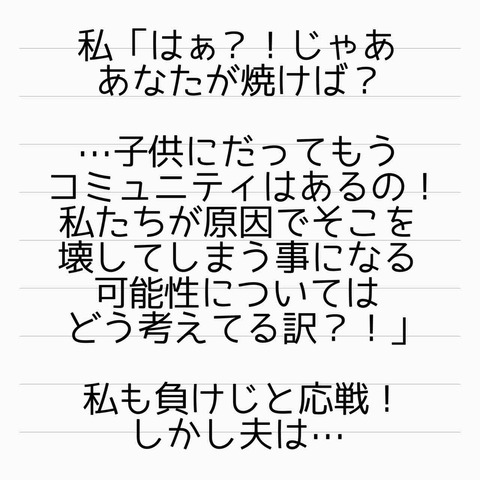 私「はぁ？！じゃあ
あなたが焼けば？
…子供にだってもう
コミュニティはあるの！
私たちが原因でそこを
壊してしまう事になる
可能性については
どう考えてる訳？！」
私も負けじと応戦！
しかし夫は…